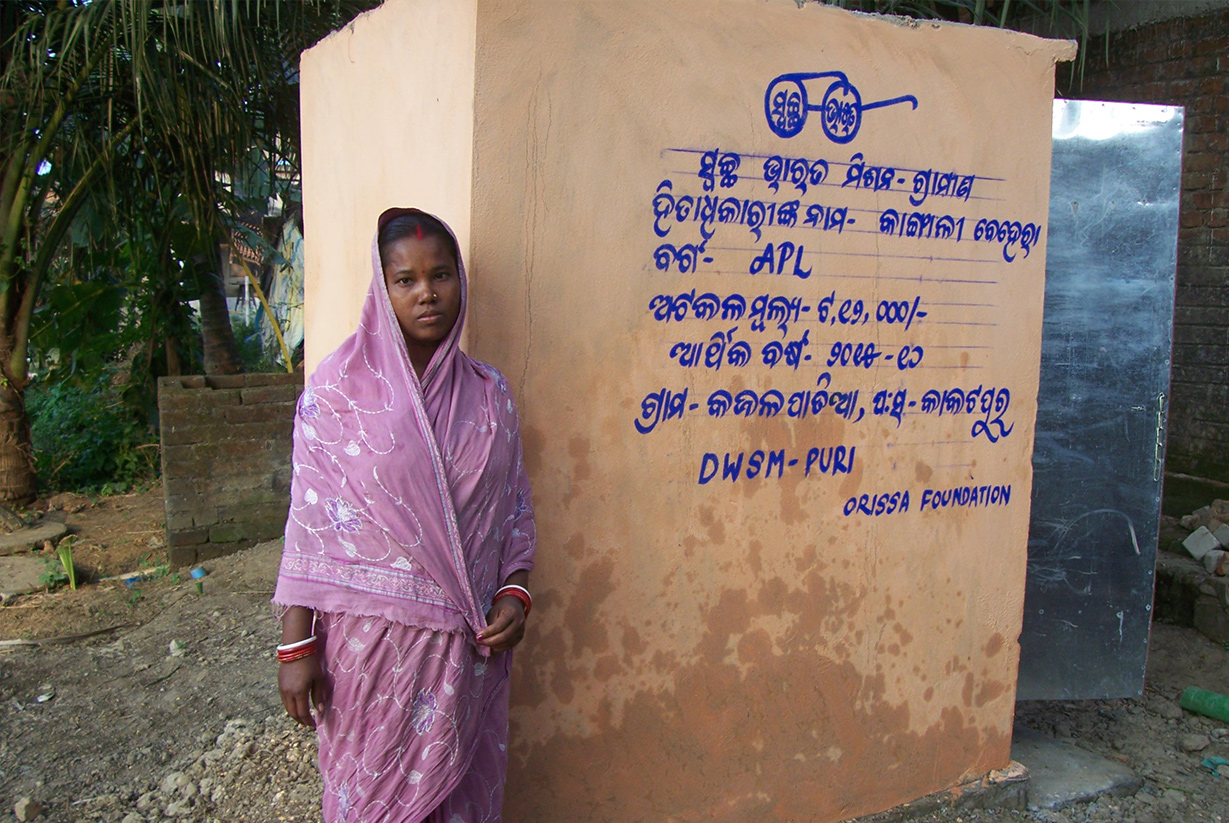 ସ୍ୱଚ୍ଛ ଭାରତ
ସ୍ୱଚ୍ଛ ଭାରତ ମିଶନ-ଗ୍ରାମୀଣ
ହିତାଧିକାରୀଙ୍କ ନାମ- କାଙ୍ଗାଳୀ ବେହେରା
ବର୍ଗ- APL
ଅଟକଳ ମୂଲ୍ୟ- ଟ.୧୨,୦୦୦/-
ଆର୍ଥିକ ବର୍ଷ- ୨୦୧୫-୧୬
ଗ୍ରାମ- କଜଳପାଟିଆ, ପଃସ୍-କାକଟପୁର
DWSM-PURI
ORISSA FOUNDATION